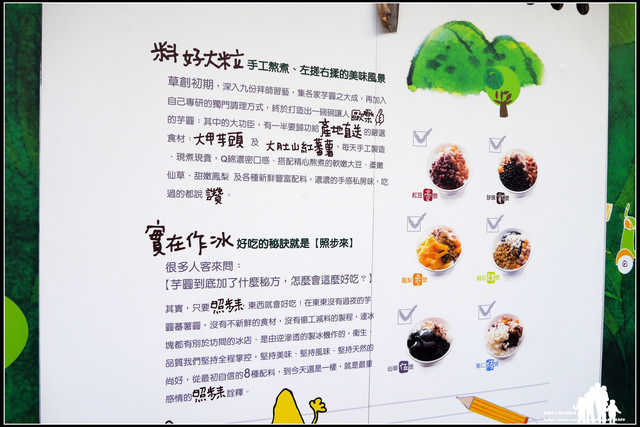 料好大粒 手工熬煮、左搓右揉的美味風景
草創初期，深入九份拜師習藝，集各家芋圓之大成，再加入
自己專研的獨門調理方式，終於打造出一碗碗讓人
的芋圓；其中的大功臣，有一半要歸功給產地直送的嚴選
食材：大甲芋頭 及 大肚山紅蕃薯，每天手工製造
、現煮現賣，Q綿濃密口感、搭配精心熬煮的軟嫩大豆、柔嫩
仙草、甜嫩鳳梨 及各種新鮮豐富配料，濃濃的手感私房味，吃
過的都說 讚。
實在作冰 好吃的秘訣就是【照步來】
很多人客來問：
【芋圓到底加了什麼秘方，怎麼會這麼好吃？】
其實，只要照步來 東西就會好吃！在東東沒有過夜的芋
圓蕃薯圓，沒有不新鮮的食材，沒有偷工減料的製程，連冰
塊都有別於坊間的冰店、是由逆滲透的製冰機作的，衛生、
品質我們堅持全程掌控，堅持美味、堅持風味、堅持天然的
尚好，從最初自信的8種配料，到今天還是一樣，就是最重
感情的照步來詮釋。
紅豆 壹號
珍珠 貳號
鳳梨 參號
綠豆 肆號
仙草 伍號
薏仁 陸號